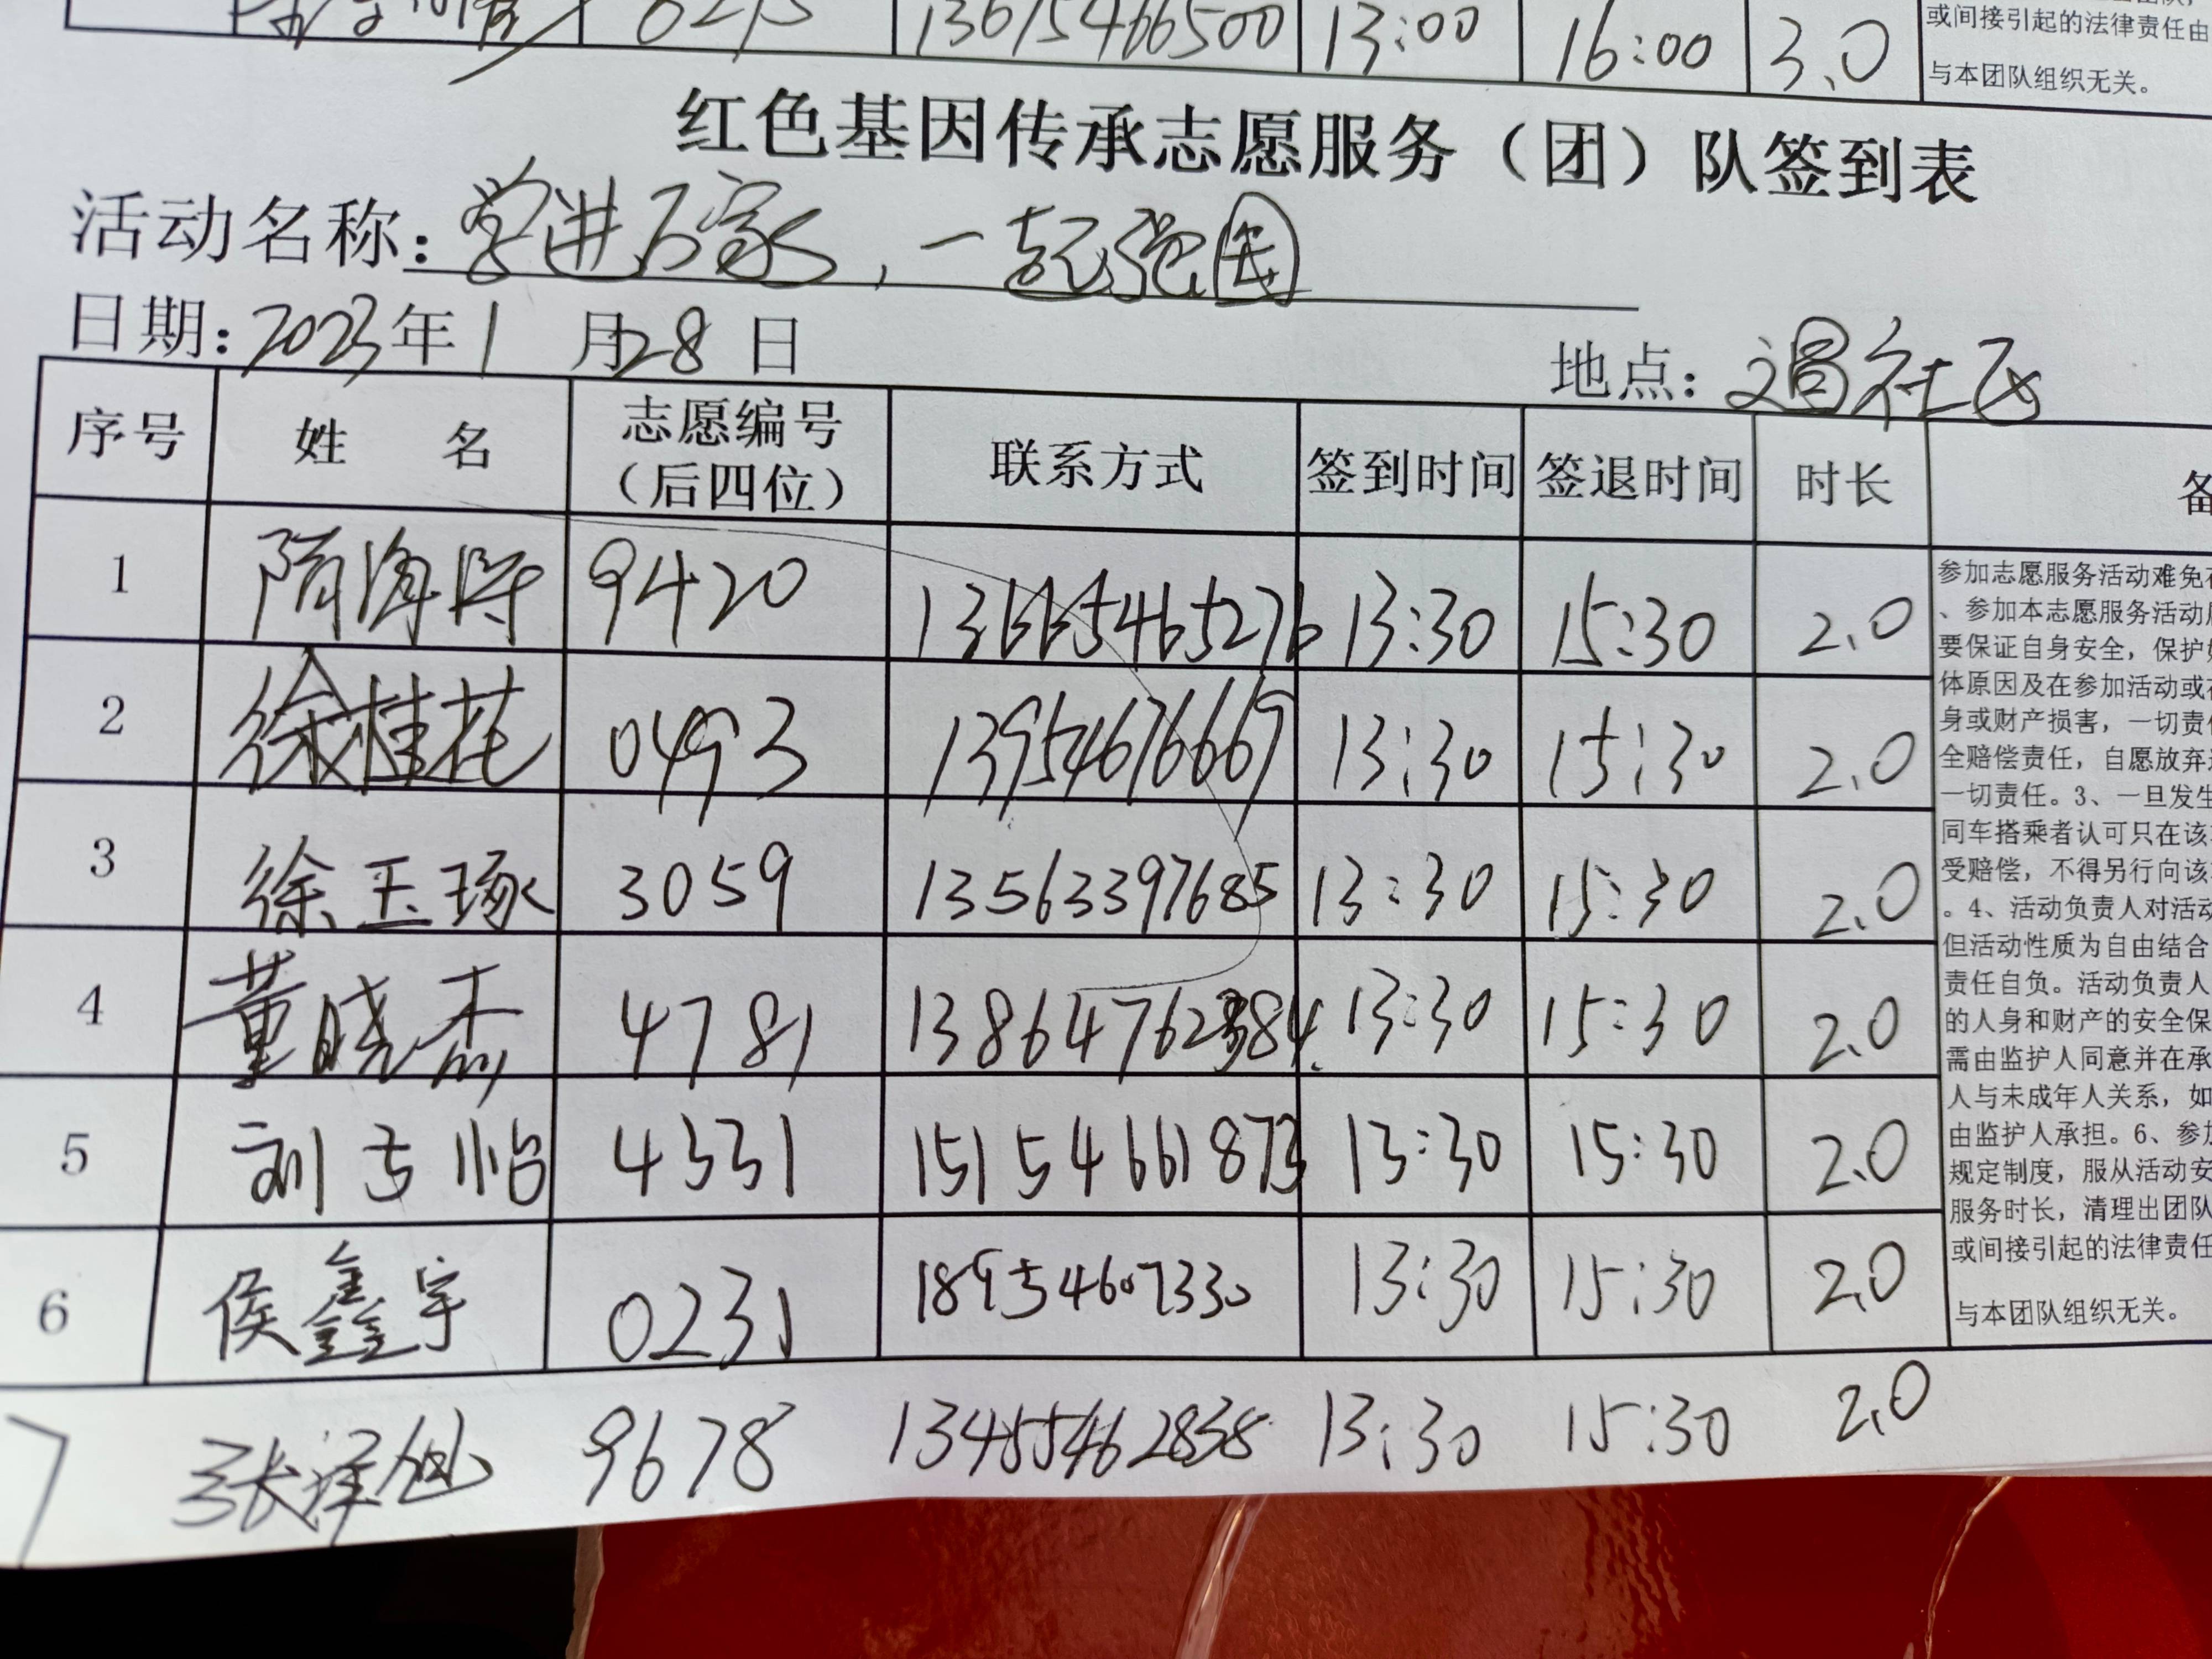 0275 13615466500 13:00 16:00 3.0
或间接引起的法律责任由
与本团队组织无关。
红色基因传承志愿服务（团）队签到表
活动名称：学进万家，一起强国
日期：2023年1月28日
地点：文昌社区
序号 姓 名 志愿编号（后四位） 联系方式 签到时间 签退时间 时长 备
1 隋海 9420 13665465276 13:30 15:30 2.0
2 徐桂花 0493 13954676669 13:30 15:30 2.0
3 徐玉琢 3059 13563397685 13:30 15:30 2.0
4 董晓杰 4781 13864762384 13:30 15:30 2.0
5 刘吉怡 4331 15154661873 13:30 15:30 2.0
6 侯鑫宇 0231 18954607330 13:30 15:30 2.0
参加志愿服务活动难免
、参加本志愿服务活动
要保证自身安全，保护
体原因及在参加活动或
身或财产损害，一切责
全赔偿责任，自愿放弃
一切责任。3、一旦发生
同车搭乘者认可只在该
受赔偿，不得另行向该
。4、活动负责人对活动
但活动性质为自由结合
责任自负。活动负责人
的人身和财产的安全保
需由监护人同意并在承
人与未成年人关系，如
由监护人承担。6、参加
规定制度，服从活动安
服务时长，清理出团队
或间接引起的法律责任
与本团队组织无关。
7 张 9678 13455462838 13:30 15:30 2.0